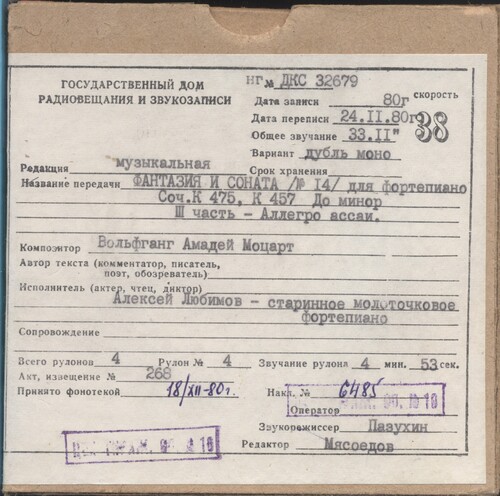 ГОСУДАРСТВЕННЫЙ ДОМ
РАДИОВЕЩАНИЯ И ЗВУКОЗАПИСИ
НГ № ДКС 32679
Дата записи 80г скорость
Дата переписи 24.II.80г 38
Общее звучание 33.II"
Вариант дубль моно
Редакция музыкальная Срок хранения
Название передачи ФАНТАЗИЯ И СОНАТА /№ I4/ для фортепиано
Соч.К 475, К 457 До минор
III часть - Аллегро ассаи.
Композитор Вольфганг Амадей Моцарт
Автор текста (комментатор, писатель,
поэт, обозреватель)
Исполнитель (актер, чтец, диктор)
Алексей Любимов - старинное молоточковое
фортепиано
Сопровождение
Всего рулонов 4 Рулон № 4 Звучание рулона 4 мин. 53 сек.
Акт, извещение № 268
Принято фонотекой 18/XII-80г. Накл. № 6485
Оператор
Звукорежиссер Пазухин
Редактор Мясоедов